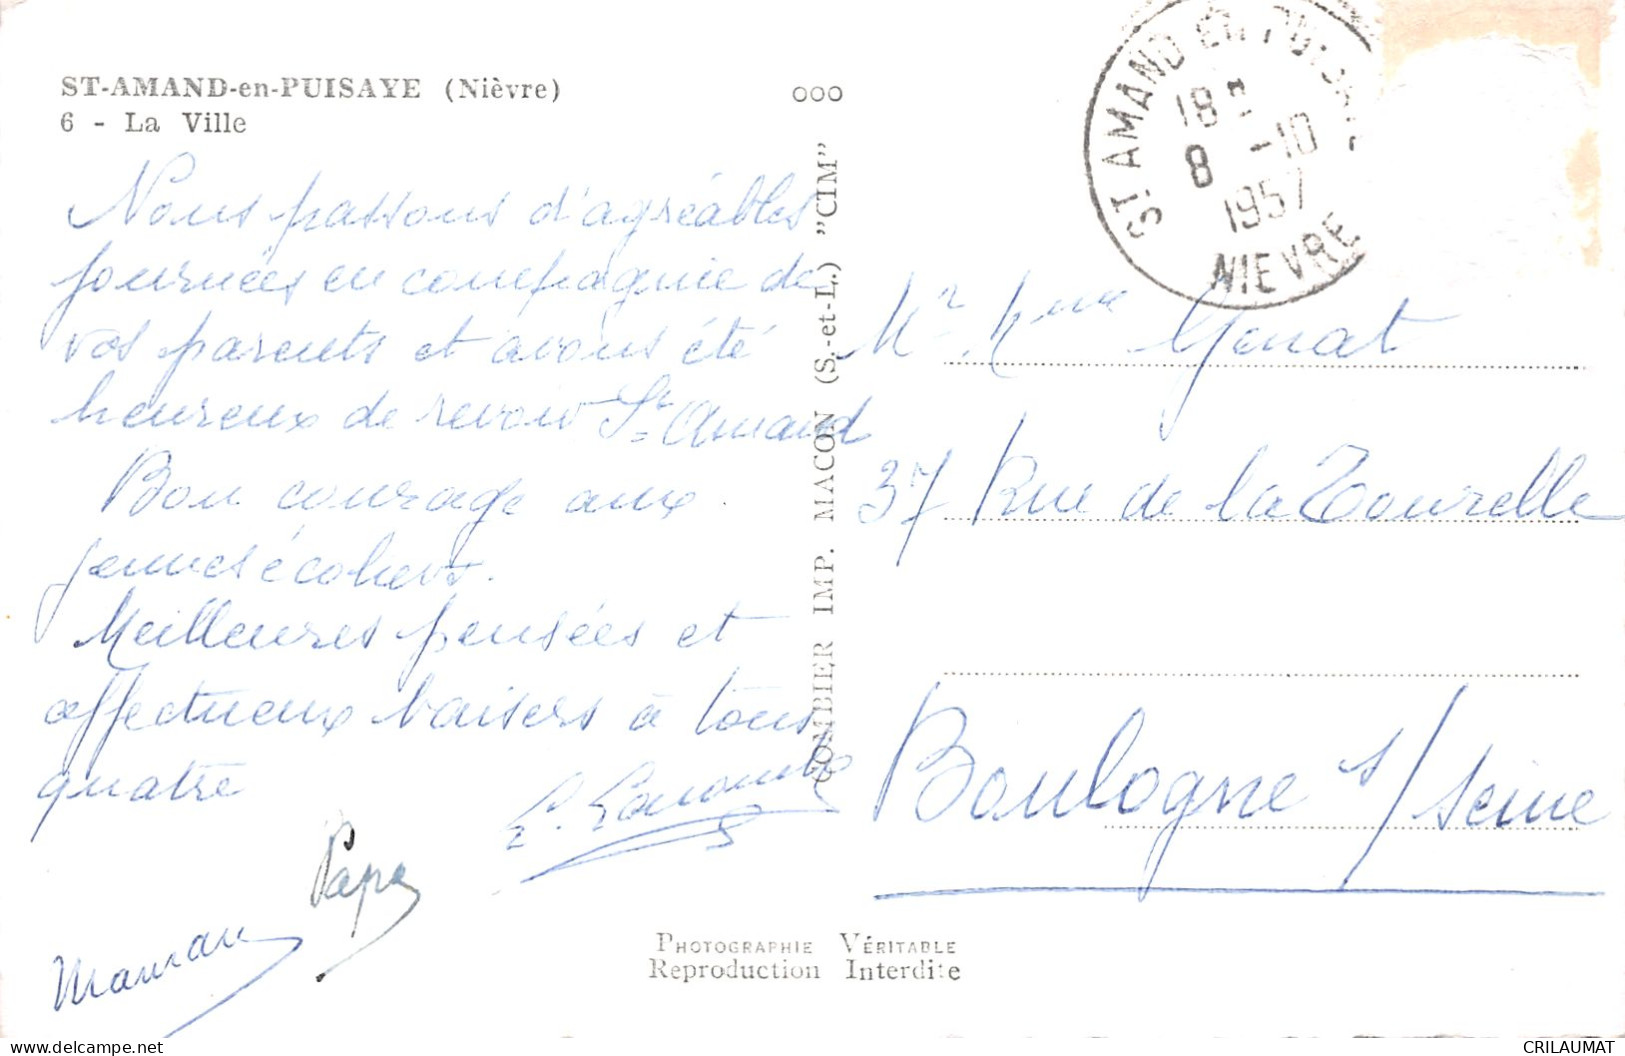 ST-AMAND-en-PUISAYE (Nièvre)
6 - La Ville
Nous passons d'agréables
journées en compagnie de
vos parents et avons été
heureux de revoir St Amand
Bon courage aux
jeunes écoliers.
Meilleures pensées et
affectueux baisers à tous
quatre
Papa
Maman
COMBIER IMP. MACON (S.-et-L.) "CIM"
000
ST AMAND EN PUISAYE
18H
8 -10
1957
NIEVRE
Mr Mme
37 Rue de la Tourelle
Boulogne s/ Seine
PHOTOGRAPHIE VÉRITABLE
Reproduction Interdite
CRILAUMAT